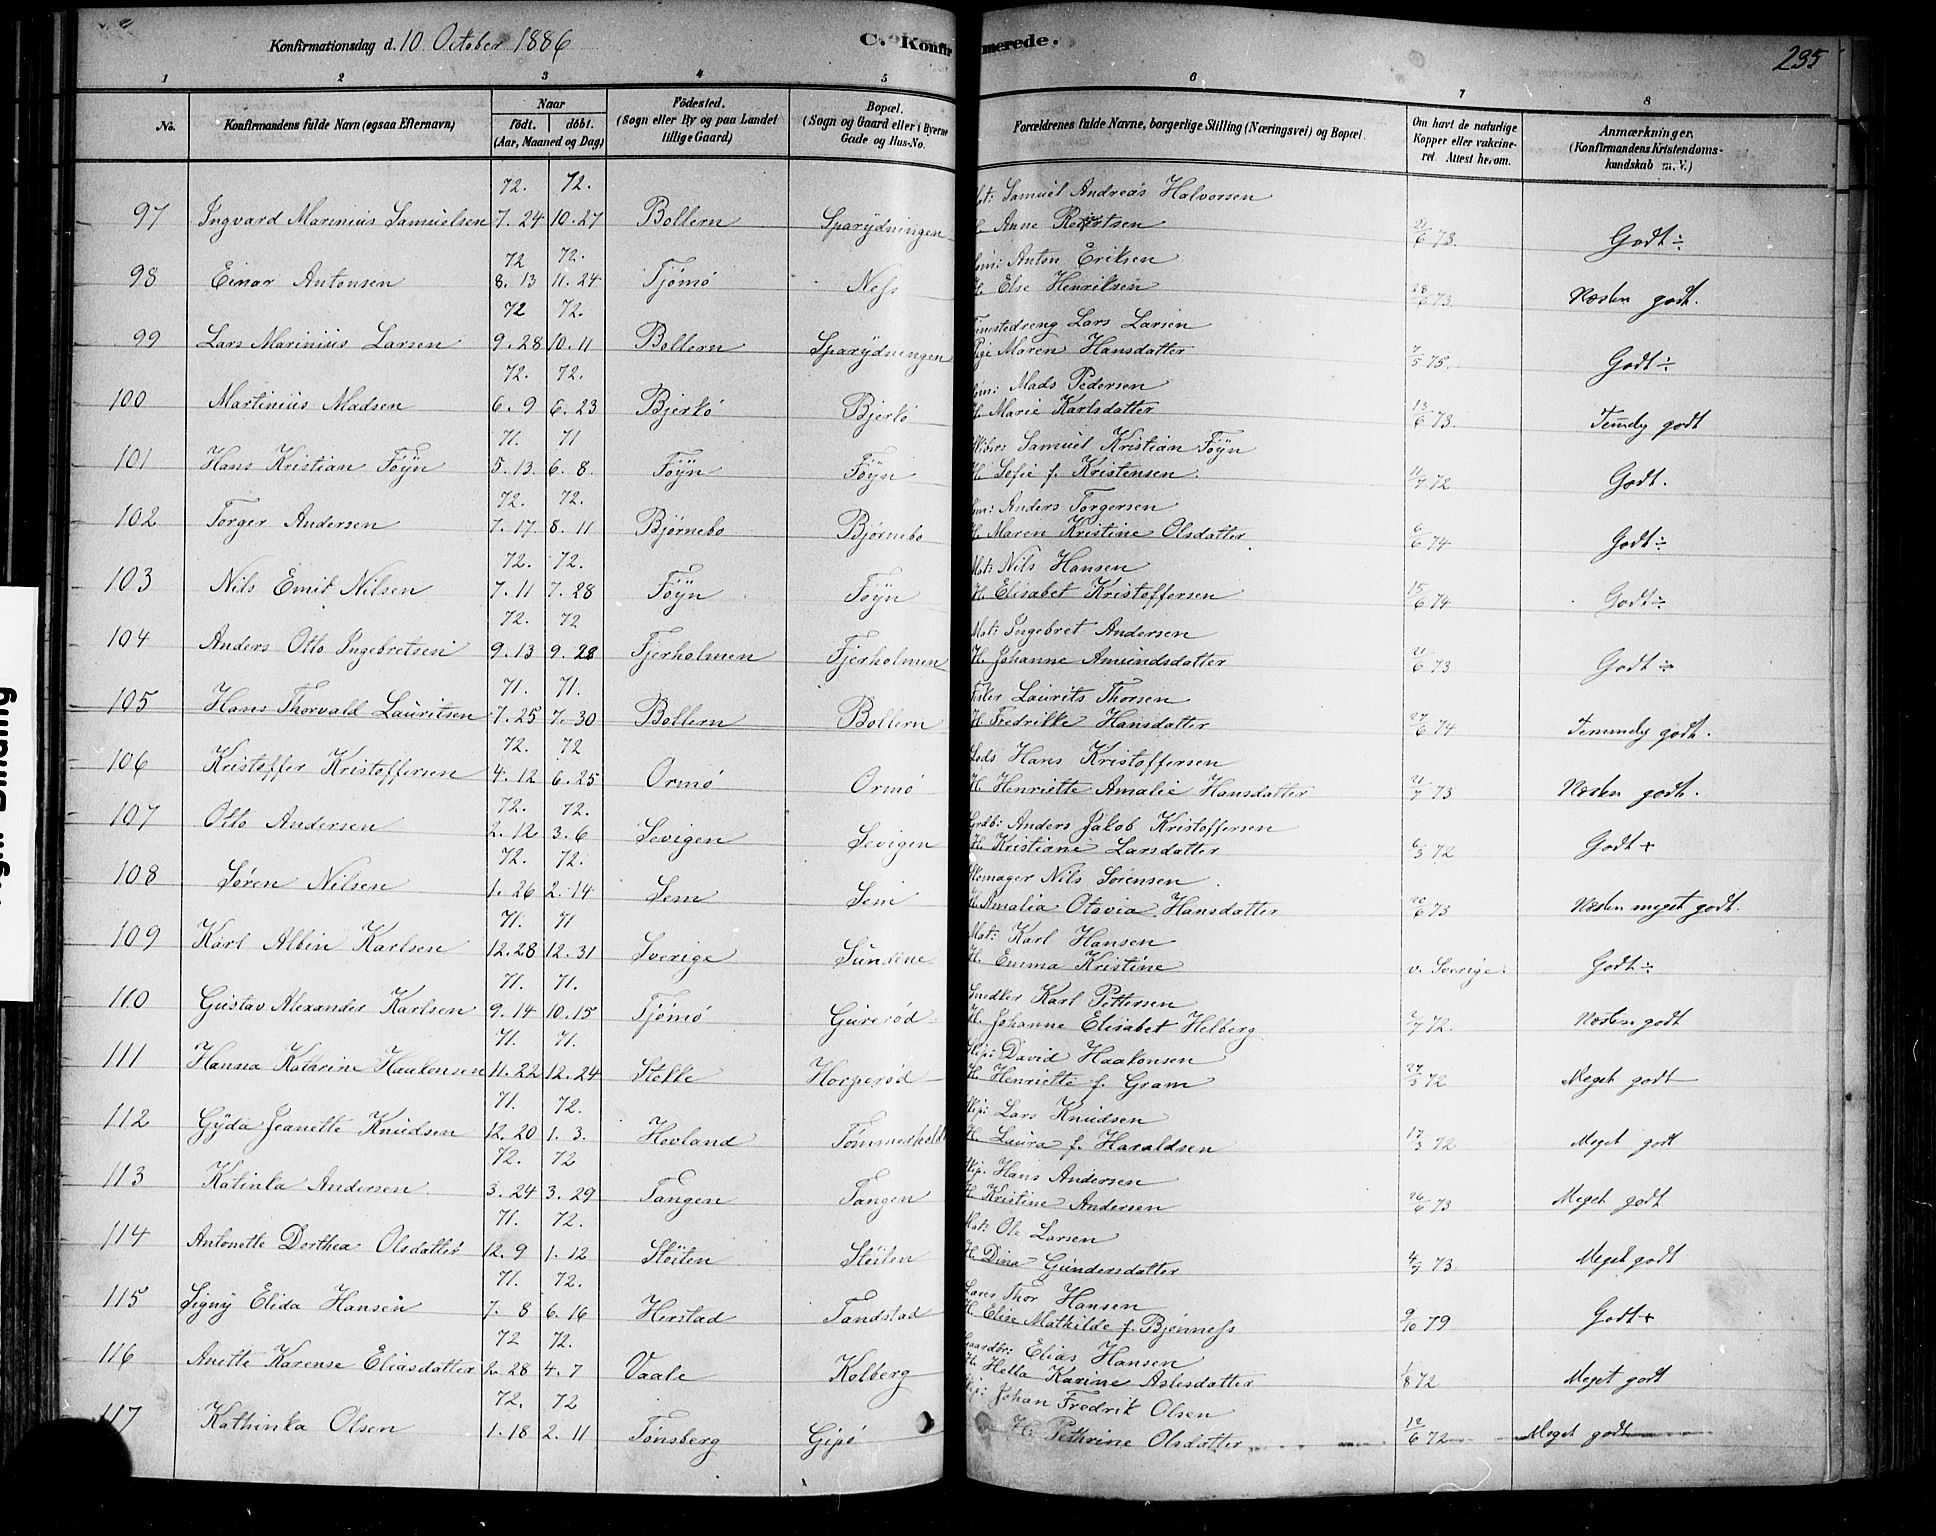 Konfirmationsdag d. 10 October 1886 C. Konfirmerede. 235
1 2 3 4 5 6 7 8
No. Konfirmandens fulde Navn (ogsaa Efternavn) Naar födt. döbt. (Aar, Maaned og Dag) Födested. (Sogn eller By og paa Landet tillige Gaard) Bopæl. (Sogn og Gaard eller i Byerne Gade og Hus-No. Forældrenes fulde Navne, borgerlige Stilling (Næringsvei) og Bopæl. Om havt de naturlige Kopper eller vakcineret. Attest herom. Anmærkninger. (Konfirmandens Kristendomskundskab m. V.)
72. 72. Mat: Samuel Andreas Halvorsen
97 Ingvard Marinius Samuelsen 7. 24 10. 27 Bollern Sparydningen H. Anne 21/6 73. Godt ÷
72 72. Anton Eriksen
98 Einar Antonsen 8. 13 11. 24 Tjömö Ness H. Else Henriksen 28/6 73. Næsten godt.
72 72. Tjenestedreng Lars Larsen
99 Lars Marinius Larsen 9. 28 10. 11 Bollern Sparydningen Pige Maren Hansdatter 7/5 75. Godt ÷
72. 72. Mads Pedersen
100 Martinius Madsen 6. 9 6. 23 Bjerkö Bjerkö H. Marie Karlsdatter 13/6 73. Temmelig godt
71. 71 Skibsr: Samuel Kristian Föyn
101 Hans Kristian Föyn 5. 13. 6. 8. Föyn Föyn H. Sofie f. Kristensen. 11/7 72 Godt.
72. 72. Anders Torgersen
102 Torger Andersen 7. 17. 8. 11 Björnebo Björnebo H. Maren Kristine Olsdatter 6/6 74 Godt ÷
72. 72. Mat: Nils Hansen
103 Nils Emil Nilsen 7. 11 7. 28 Föyn Föyn H. Elisabet Kristoffersen 15/6 74 Godt ÷
72. 72 Mat: Ingebret Andersen
104 Anders Otto Ingebretsen 9. 13 9. 28 Fjerholmen Fjerholmen H. Johanne Amundsdatter 21/6 73 Godt ÷
71. 71. Laurits Thorsen
105 Hans Thorvald Lauritsen 7. 25 7. 30 Bollern Bollern H. Fredrikke Hansdatter 27/6 74 Temmelig godt.
72. 72 Lods Hans Kristoffersen
106 Kristoffer Kristoffersen 4. 12 6. 25 Ormö Ormö H. Henriette Amalie Hansdatter 21/7 73 Næsten godt.
72. 72. Grdb: Anders Jakob Kristoffersen
107 Otto Andersen 2. 12 3. 6 Sevigen Sevigen H. Kristiane Larsdatter 6/3 72 Godt +
72. 72. Skomager Nils Sörensen
108 Sören Nilsen 1. 26 2. 14 Sem Sem H. Amalia Otavia Hansdatter 20/6 73 Næsten meget godt.
71. 71 Mat: Karl Hansen
109 Karl Albin Karlsen 12. 28 12. 31 Sverige Sundene H. Emma Kristine v. Sverige. Godt ÷
71. 71. Snedker Karl Pettersen
110 Gustav Alexander Karlsen 9. 14 10. 15 Tjömö Gureröd H. Johanne Elisabet Helberg 2/7 72. Næsten godt
71. 71. Skip: David Haakonsen
111 Hanna Kathrine Haakonsen 11. 22 12. 24 Stokke Horperöd H. Henriette f. Gram 27/3 72 Meget godt
71. 72. Skip: Lars Knudsen
112 Gyda Jeanette Knudsen 12. 20 1. 3. Hovland Tömmerholdt H. Laura f. Haraldsen 17/3 72 Meget godt
72. 72 Skip. Hans Andersen
113 Katinka Andersen 3. 24 3. 29 Tangen Tangen H. Kristine Andersen 26/6 73 Meget godt
71. 72. Mat: Ole Larsen
114 Antonette Dorthea Olsdatter 12. 9 1. 12 Stöiten Stöiten H. Dina Gundersdatter 4/7 73. Meget godt
71. 72. Thor Hansen
115 Signy Elida Hansen 7. 8 6. 16 Herstad Tandstad H. Elise Mathilde f. Bjönness 9/10 79 Godt +
72 72. Gaardbr: Elias Hansen
116 Anette Karense Eliasdatter 2. 28 4. 7 Vaale Kolberg H. Hella Karine Aslesdatter 1/8 72 Meget godt
72. 72 Skip: Johan Fredrik Olsen
117 Kathinka Olsen 1. 18 2. 11 Tönsberg Gipö H. Pethrine Olsdatter 12/6 72 Meget godt